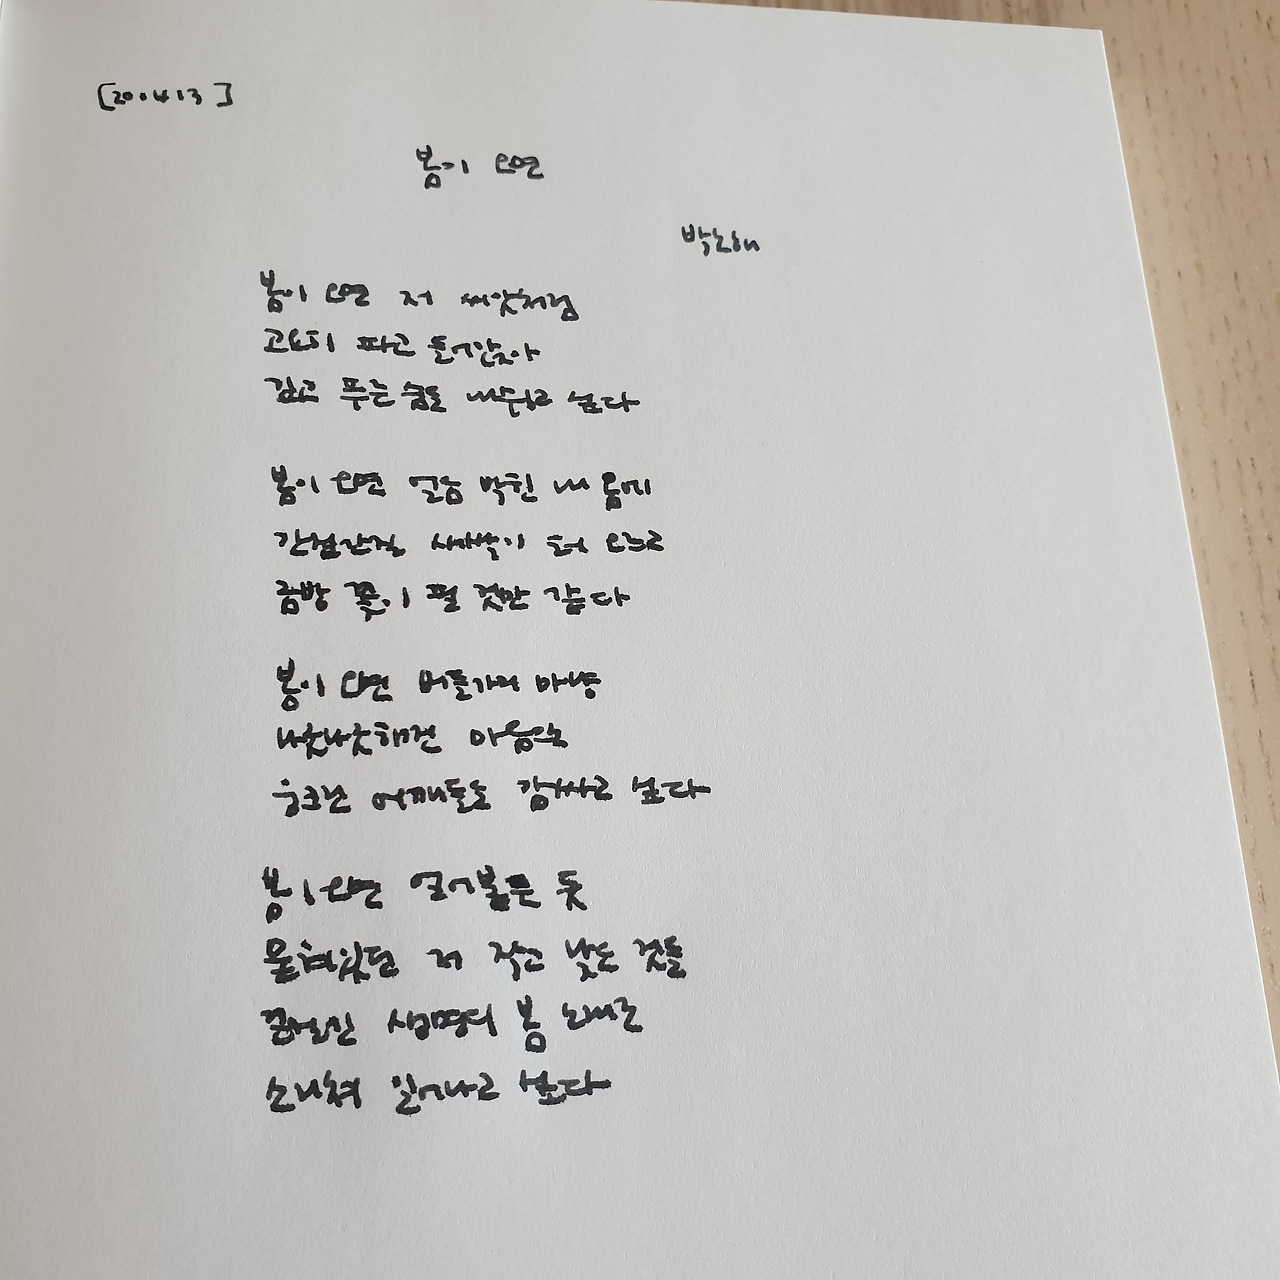 [200413]
봄이 오면
박노해
봄이 오면 저 씨앗처럼
고요히 파고 들어앉아
깊고 푸른 숨도 내쉬고 싶다
봄이 오면 얼음 박힌 내 몸에
간질간질 새싹이 터 오르고
금방 꽃이 필 것만 같다
봄이 오면 버들가지 마냥
낫낫해진 마음으로
웅크린 어깨들도 감싸고 싶다
봄이 오면 얼어붙은 듯
움쳐있던 저 작고 낮은 것들
생명의 봄 노래로
소리쳐 일어나고 싶다